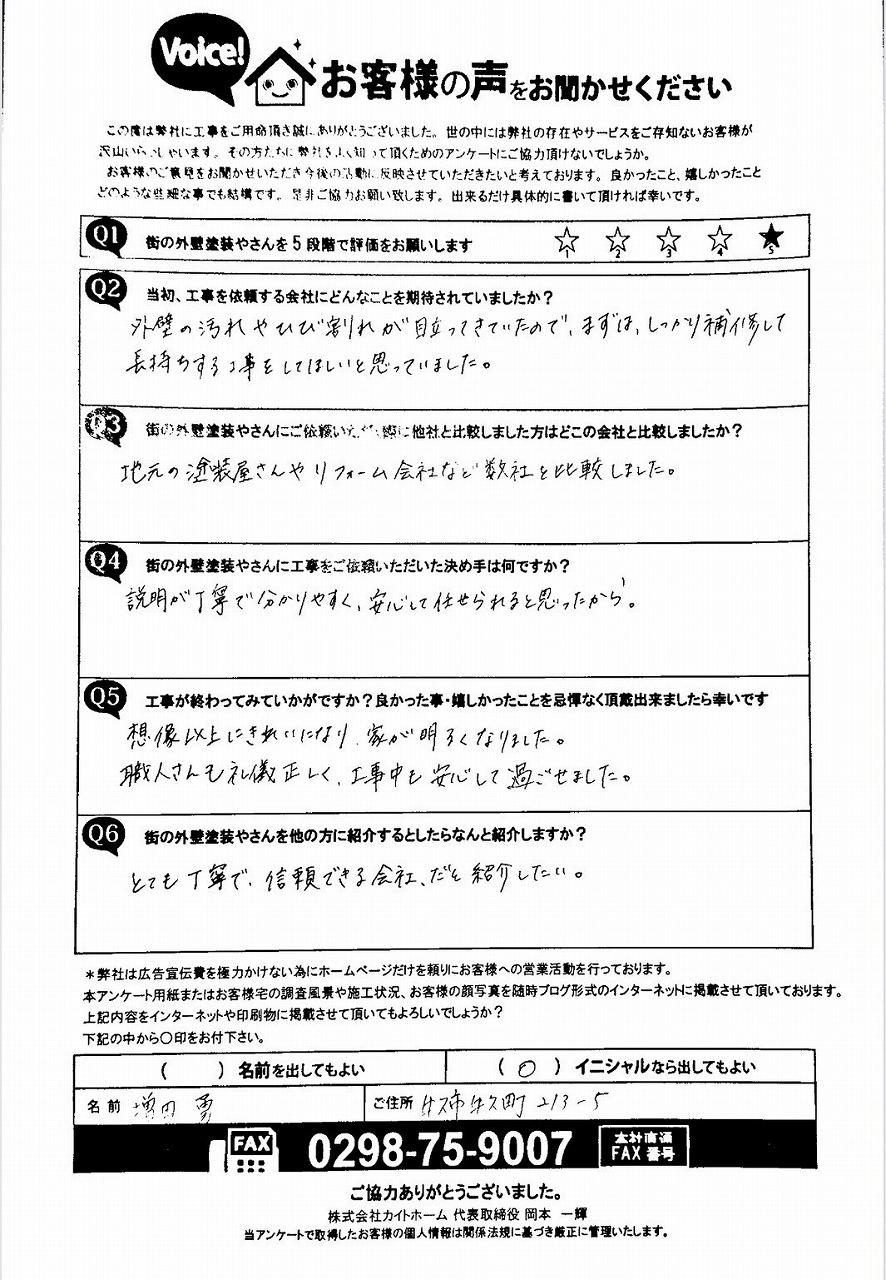 Voice!
お客様の声をお聞かせください
この度は弊社に工事をご用命頂き誠にありがとうございました。世の中には弊社の存在やサービスをご存知ないお客様が
沢山いらっしゃいます。その方たちに弊社をよく知って頂くためのアンケートにご協力頂けないでしょうか。
お客様のご意見をお聞かせいただき今後の活動に反映させていただきたいと考えております。良かったこと、嬉しかったこと
どのような些細な事でも結構です。是非ご協力お願い致します。出来るだけ具体的に書いて頂ければ幸いです。
Q1 街の外壁塗装やさんを5段階で評価をお願いします ☆1 ☆2 ☆3 ☆4 ★5
Q2 当初、工事を依頼する会社にどんなことを期待されていましたか？
外壁の汚れやひび割れが目立ってきていたので、まずは、しっかり補修して
長持ちする工事をしてほしいと思っていました。
Q3 街の外壁塗装やさんにご依頼いただく際に他社と比較しました方はどこの会社と比較しましたか？
地元の塗装屋さんやリフォーム会社など数社と比較しました。
Q4 街の外壁塗装やさんに工事をご依頼いただいた決め手は何ですか？
説明が丁寧で分かりやすく、安心して任せられると思ったから。
Q5 工事が終わってみていかがですか？良かった事・嬉しかったことを忌憚なく頂戴出来ましたら幸いです
想像以上にきれいになり、家が明るくなりました。
職人さんも礼儀正しく、工事中も安心して過ごせました。
Q6 街の外壁塗装やさんを他の方に紹介するとしたらなんと紹介しますか？
とても丁寧で、信頼できる会社、だと紹介したい。
＊弊社は広告宣伝費を極力かけない為にホームページだけを頼りにお客様への営業活動を行っております。
本アンケート用紙またはお客様宅の調査風景や施工状況、お客様の顔写真を随時ブログ形式のインターネットに掲載させて頂いております。
上記内容をインターネットや印刷物に掲載させて頂いてもよろしいでしょうか？
下記の中から〇印をお付下さい。
（　　）名前を出してもよい （○）イニシャルなら出してもよい
名前 増田 勇 ご住所 牛久市牛久町213-5
FAX 0298-75-9007 本社直通 FAX番号
ご協力ありがとうございました。
株式会社カイトホーム 代表取締役 岡本 一輝
当アンケートで取得したお客様の個人情報は関係法規に基づき厳正に管理いたします。